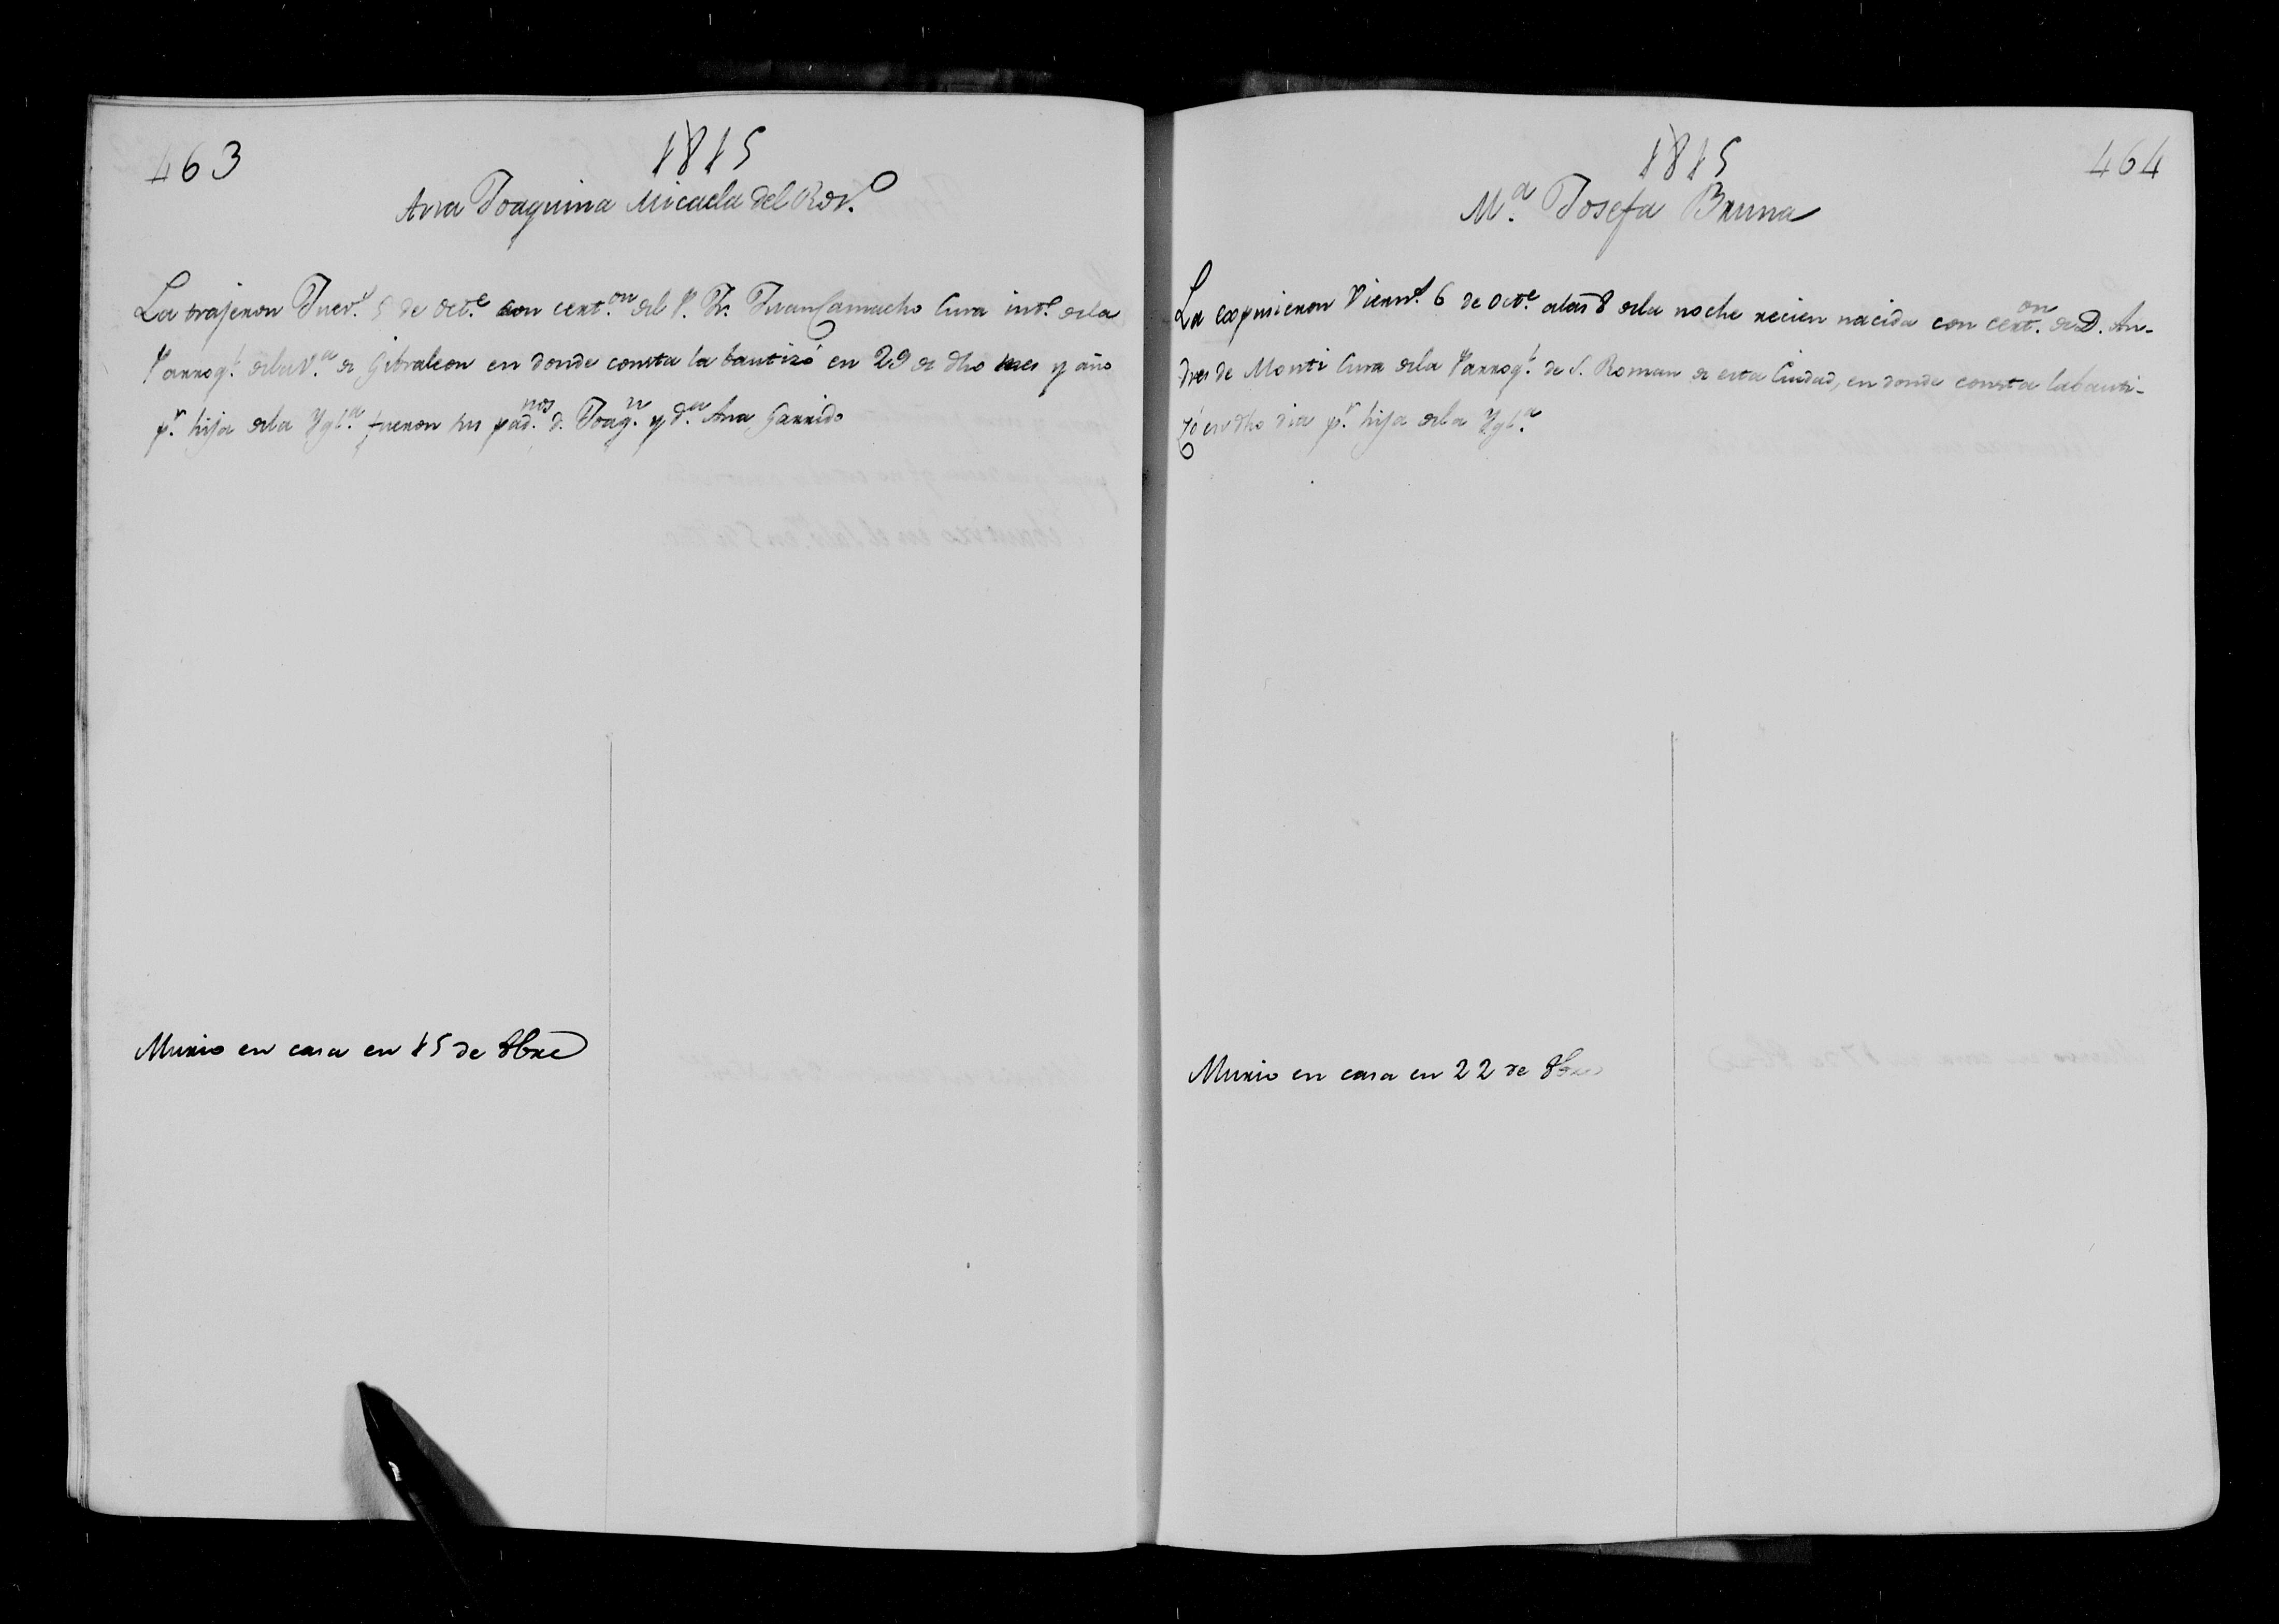 463
1815
Ana Joaquina Micaela del Ros.º
La trajeron Juev.s 5 de Oct.e con cert.on del P. Fr. Juan Camacho Cura int.e dela
Parroq.l dela V.a de Gibraleon en donde consta la bautizó en 29 de dho mes y año
p.r hija dela Ygl.a fueron sus pad.nos d. Joaq.n y d.a Ana Garrido
Murio en casa en 15 de 8bre
1815
464
M.a Josefa Bruna
La expusieron Viern.s 6 de Oct.e alas 8 dela noche recien nacida con cert.on de D. An-
dres de Monti Cura dela Parroq.l de S. Roman de esta Ciudad, en donde consta labauti-
zó en dho dia p.r hija dela Ygl.a
Murio en casa en 22 de 8bre